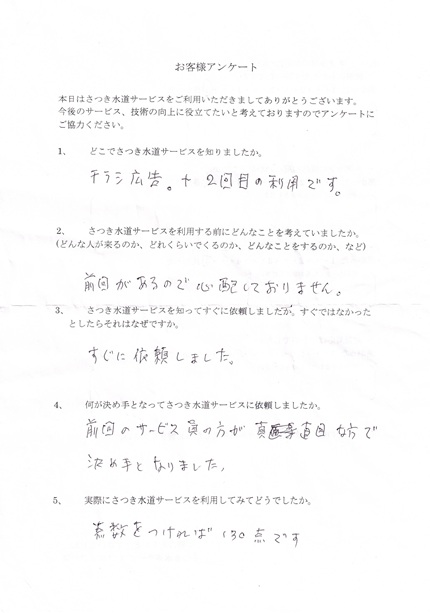 お客様アンケート
本日はさつき水道サービスをご利用いただきましてありがとうございます。
今後のサービス、技術の向上に役立てたいと考えておりますのでアンケートに
ご協力ください。
1、 どこでさつき水道サービスを知りましたか。
チラシ広告。+ 2回目の利用です。
2、 さつき水道サービスを利用する前にどんなことを考えていましたか。
(どんな人が来るのか、どれくらいでくるのか、どんなことをするのか、など)
前回があるので心配しておりません。
3、 さつき水道サービスを知ってすぐに依頼しましたか。すぐではなかった
としたらそれはなぜですか。
すぐに依頼しました。
4、 何が決め手となってさつき水道サービスに依頼しましたか。
前回のサービス員の方が真面目な方で
決め手となりました。
5、 実際にさつき水道サービスを利用してみてどうでしたか。
点数をつければ130点です